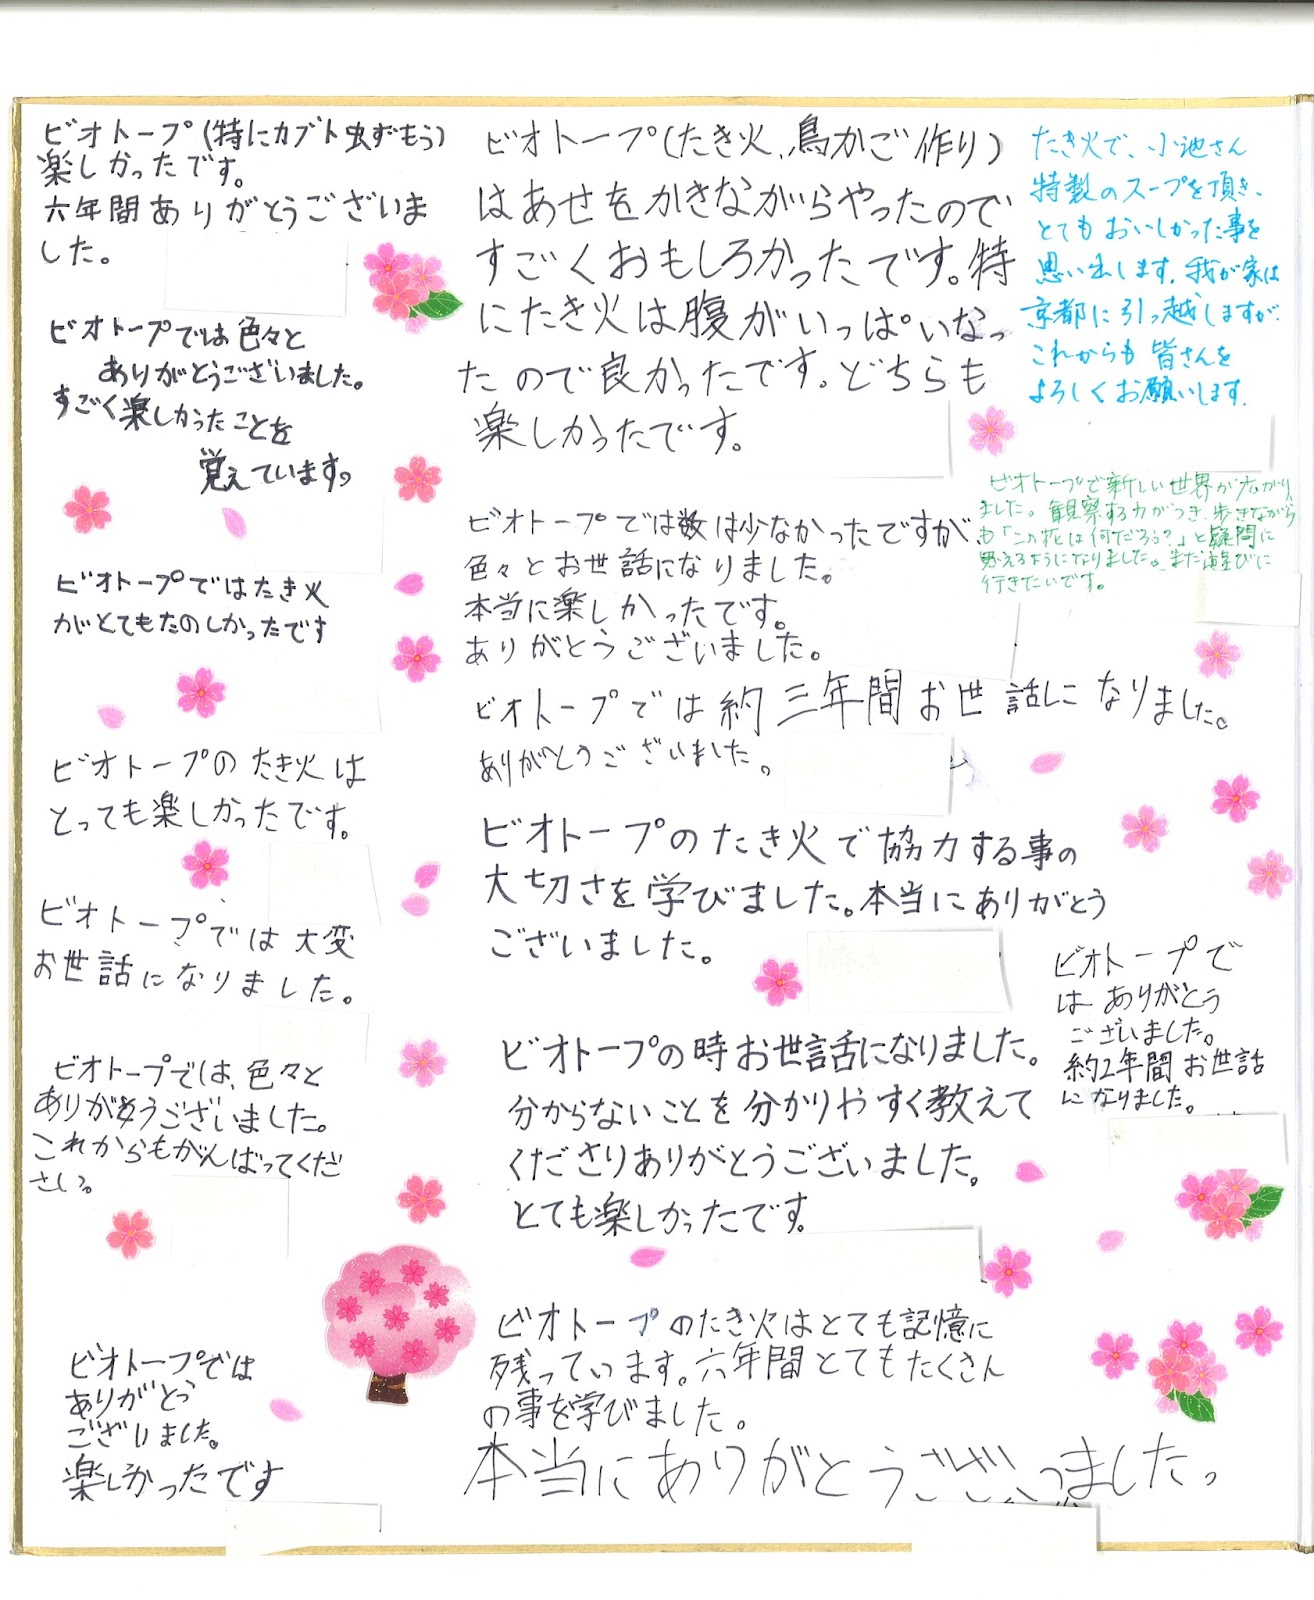 ビオトープ(特にカブト虫ずもう)
楽しかったです。
六年間ありがとうございま
した。
ビオトープでは色々と
ありがとうございました。
すごく楽しかったことを
覚えています。
ビオトープではたき火
がとてもたのしかったです
ビオトープのたき火は
とっても楽しかったです。
ビオトープでは大変
お世話になりました。
ビオトープでは、色々と
ありがとうございました。
これからもがんばってくだ
さい。
ビオトープでは
ありがとう
ございました。
楽しかったです
ビオトープ(たき火、鳥かご作り)
はあせをかきながらやったので
すごくおもしろかったです。特
にたき火は腹がいっぱいなっ
たので良かったです。どちらも
楽しかったです。
ビオトープでは数は少なかったですが、
色々とお世話になりました。
本当に楽しかったです。
ありがとうございました。
ビオトープでは約三年間お世話になりました。
ありがとうございました。
ビオトープのたき火で協力する事の
大切さを学びました。本当にありがとう
ございました。
ビオトープの時お世話になりました。
分からないことを分かりやすく教えて
くださりありがとうございました。
とても楽しかったです。
ビオトープのたき火はとても記憶に
残っています。六年間とてもたくさん
の事を学びました。
本当にありがとうございました。
たき火で、小池さん
特製のスープを頂き、
とてもおいしかった事を
思い出します。我が家は
京都に引っ越しますが、
これからも皆さんを
よろしくお願いします。
ビオトープで新しい世界が広がり
ました。観察する力がつき、歩きながら
も「この花は何だろう?」と疑問に
思えるようになりました。また遊びに
行きたいです。
ビオトープで
は ありがとう
ございました。
約2年間お世話
になりました。